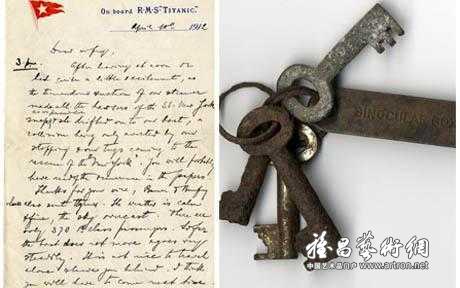 On board R.M.S. "TITANIC."
April 10th 1912
Dear wifey,
3 pm. After having at noon
a little excitement, as
the tremendous suction of our steamer
made all the hawsers of the SS. New York
snap she drifted on to our boat, a
collision being only averted by our
stopping & our tugs coming to the
rescue of the "New York". You will probably
have read the in the papers
Thanks for your wire,
also sent The weather is calm &
fine, the sky overcast. There are
only 370 1st class passengers. So far
the boat does not move & goes very
steadily. It is not nice to travel
alone & leave you behind. I think
you will have to come next time
BINOCULAR BOX
雅昌藝術網
中国艺术品门户
www.artron.net